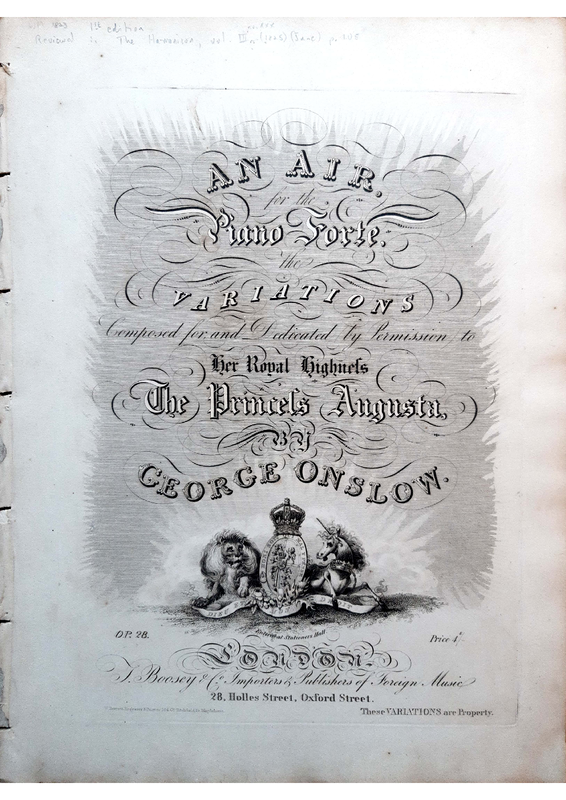 1st edition
Reviewed in The Harmonicon, vol.
AN AIR,
for the
Piano Forte.
the
VARIATIONS
Composed for and Dedicated by Permission, to
Her Royal Highneſs
The Princeſs Augusta,
BY
GEORGE ONSLOW.
DIEU ET MON DROIT
Enter'd at Stationers Hall
OP. 28.
Price 4/.
LONDON.
T. Boosey & Co. Importers & Publishers of Foreign Music
28, Holles Street, Oxford Street.
These VARIATIONS are Property.